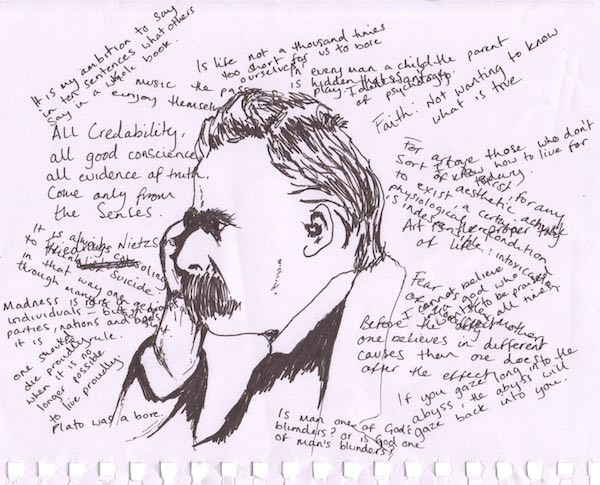 It is my ambition to say
in ten sentences what others
say in a whole book.
Is life not a thousand times
too short for us to bore
ourselves?
In every man a child
is hidden that
play.
music the
enjoy themselves
the parent
of psychology.
Faith: Not wanting to know
what is true
All Credability,
all good conscience
all evidence of truth
Come only from
the Senses.
For
those who don't
know how to live for
For art to
exist, for any
sort of
aesthetic activity
to exist, a certain
physiological precondition
is indespensable: intoxication
Art is the proper
of life.
It is always
to
Nietzs
suicide
in that way one gets
through many
Madness is rare in
individuals – but in
parties, nations and
it is
rule.
one should
die proudly
when it is no
longer possible
to live proudly
Plato was a bore.
I cannot believe
in a God who
wants to be praised
all the time
Fear
Mother
of
Before the effect
one believes in different
causes than one does
after the effect
If you gaze long into the
abyss, the abyss will
gaze back into you.
Is man one of God's
blunders? or is god one
of man's blunders?